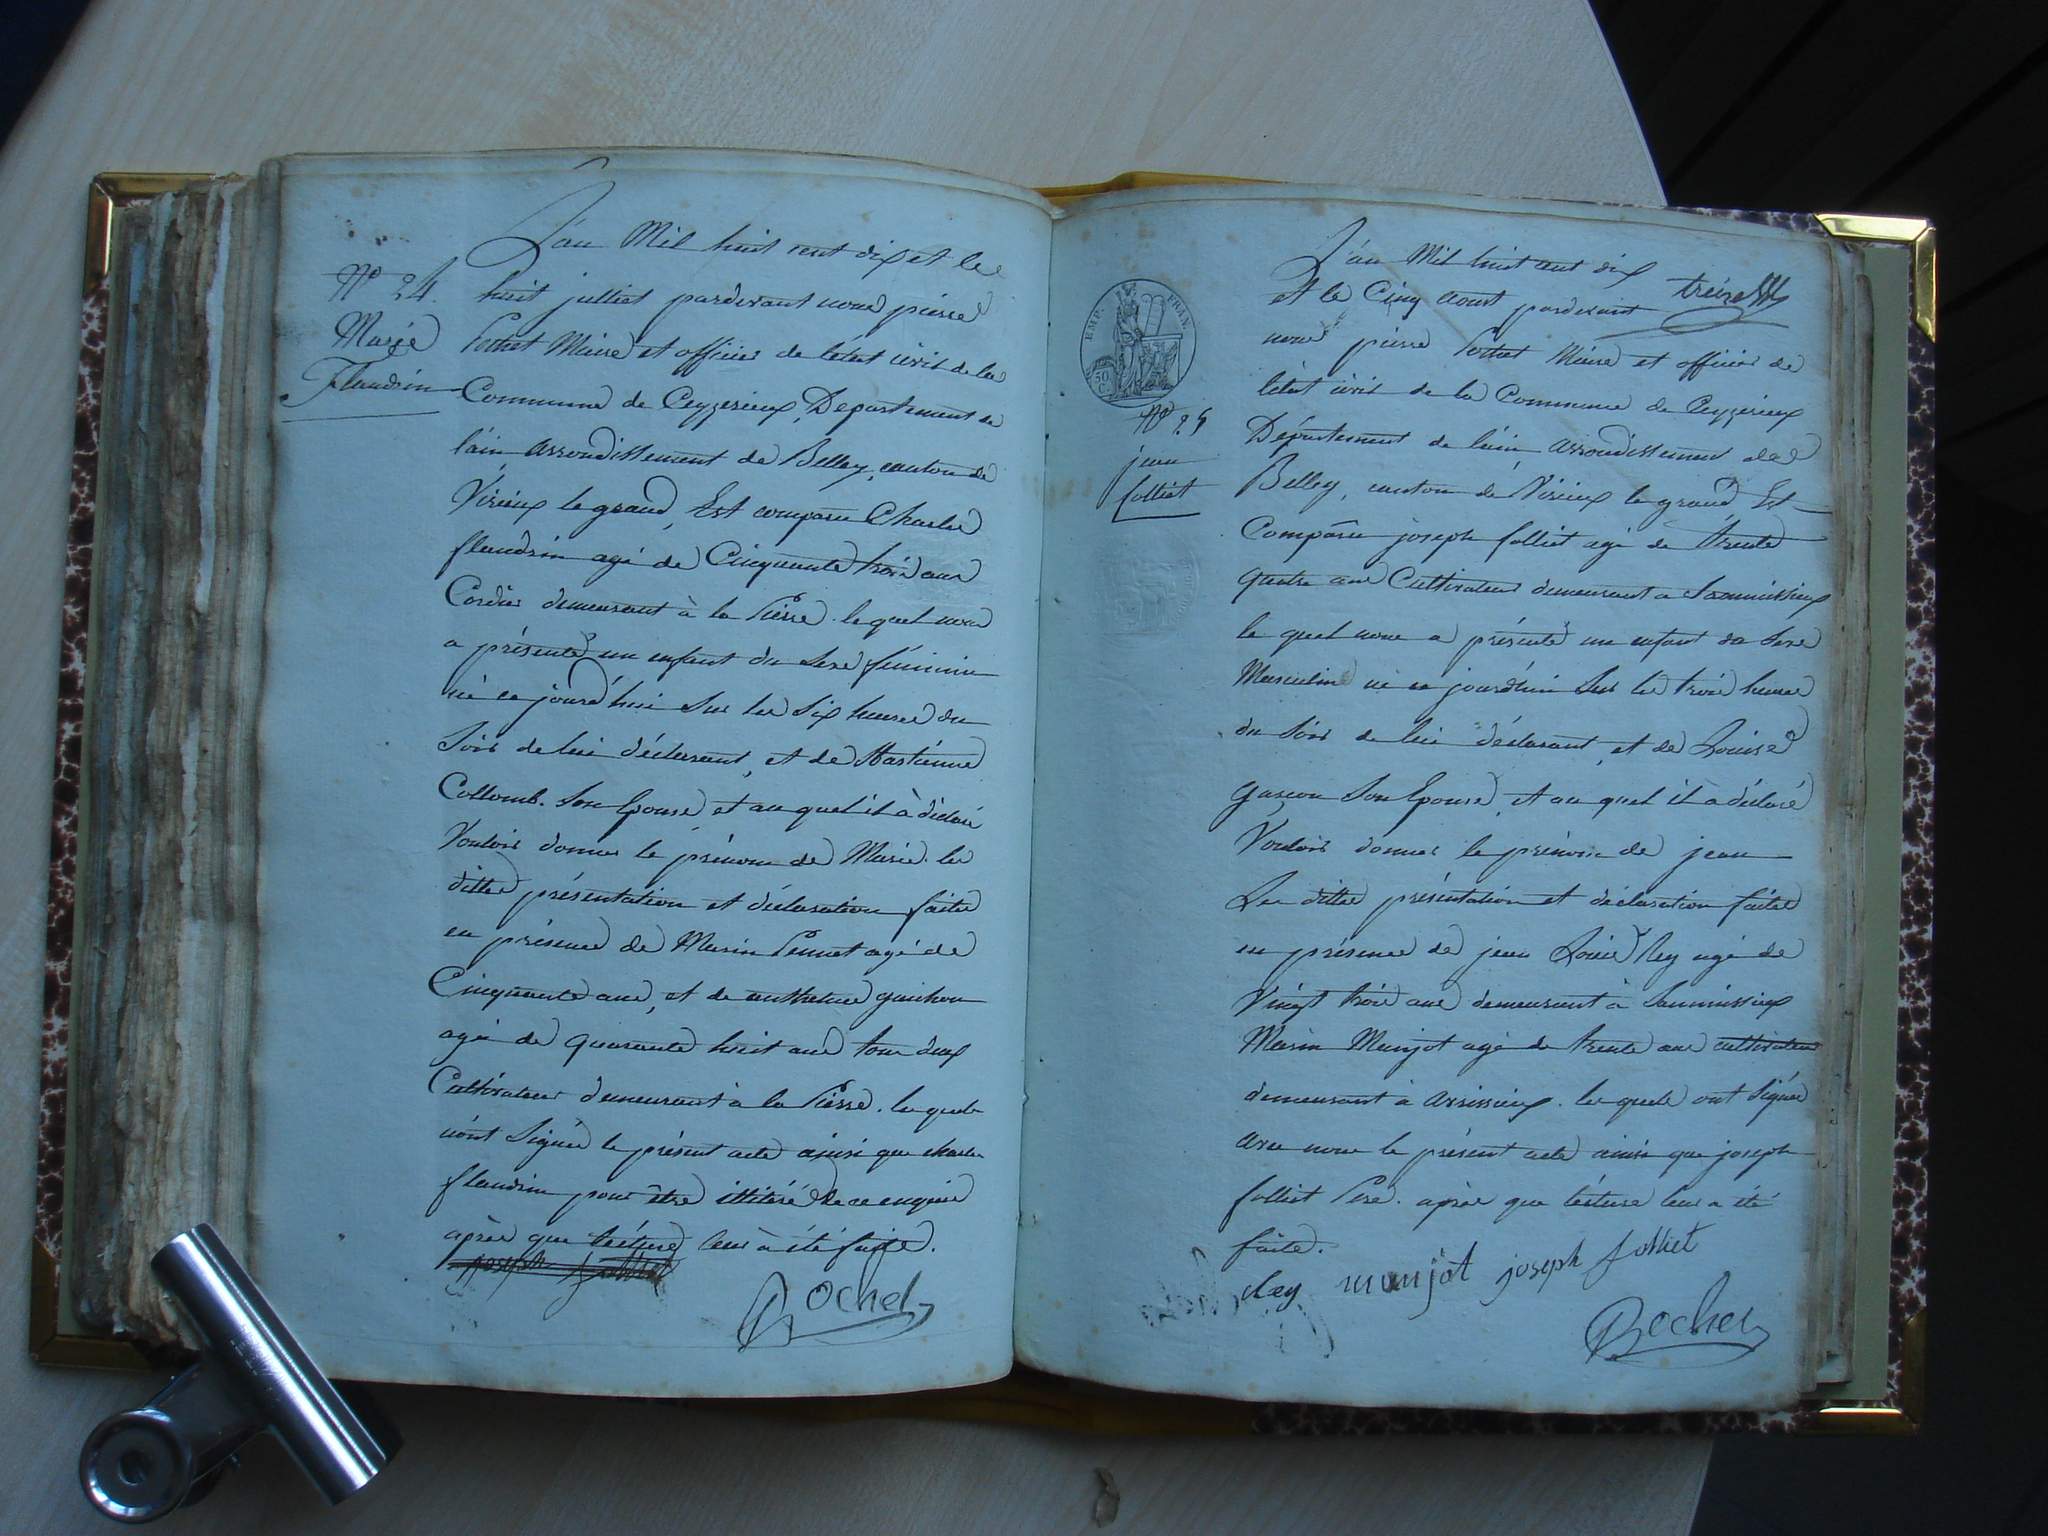 N° 24.
Marie
Flandrin
L'an Mil huit cent dix et le
huit julliet pardevant nous pierre
Rochet Maire et officier de l'état civil de la
Commune de Ceyzerieux, Département de
l'ain arrondissement de Belley, canton de
Virieux le grand, Est comparu Charles
flandrin agé de Cinquante trois ans
Cordier demeurant à la Pierre. le quel nous
a présenté un enfant du Sexe féminin
né ce jourd'hui Sur les Six heures du
Soir de lui déclarant, et de
Collomb. Son Epouse, et au quel il à déclaré
Vouloir donner le prénom de Marie. la
ditte présentation et déclaration faite
en présence de Marin Pennet agé de
Cinquante ans, et de anthelme guichon
agé de quarante huit ans tous deux
Cultivateurs demeurant à la Pierre. les quels
n'ont Signés le présent acte ainsi que charles
flandrin pour être illitéré de ce enquis
après que lecture leur à été faite.
joseph folliet
Rochet
EMP. FRAN.
50 C.
N° 25
jean
folliet
treize
L'an Mil huit cent dix
et le Cinq aout pardevant
nous pierre Rochet Maire et officier de
l'état civil de la Commune de Ceyzerieux
Département de l'ain arrondissement de
Belley, canton de Virieux le grand Est
Comparu joseph folliet agé de trente
quatre ans Cultivateur demeurant a
le quel nous a présenté un enfant du Sexe
Masculin né ce jourd'hui Sur les trois heures
du Soir de lui déclarant, et de Louise
gascon Son Epouse, et au quel il a déclaré
Vouloir donner le prénom de jean
La ditte présentation et déclaration faite
en présence de jean Louis Rey agé de
Vingt trois ans demeurant à
Marin Munjot agé de trente ans cultivateurs
demeurant à avrissieux. les quels ont Signés
avec nous le présent acte ainsi que joseph
folliet Pere. après que lécture leur a été
faite.
Rey munjot joseph folliet
Rochet